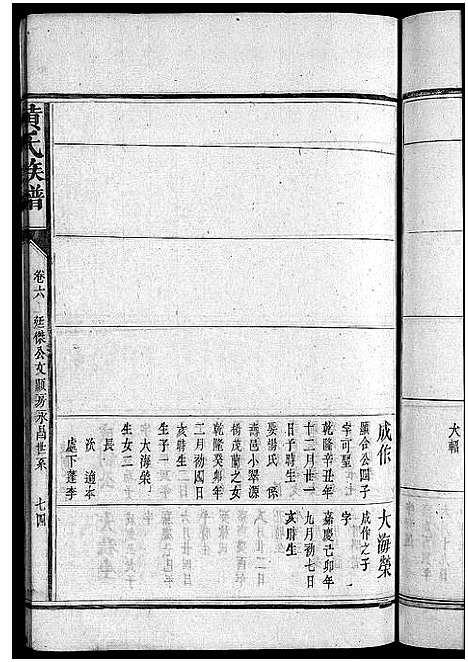 大輻
成作
顯合公四子
字可聖
乾隆辛丑年
十二月廿一
日子時生
娶楊氏 係
壽邑小翠源
楊茂蘭之女
乾隆癸卯年
二月初四日
亥時生
生子一
大海榮
生女二
長
次適本
處下蓬李
大海榮
成作之子
字
嘉慶己卯年
九月初七日
亥時生
黃氏族譜
卷六 廷傑公文顯房永昌世系 七四